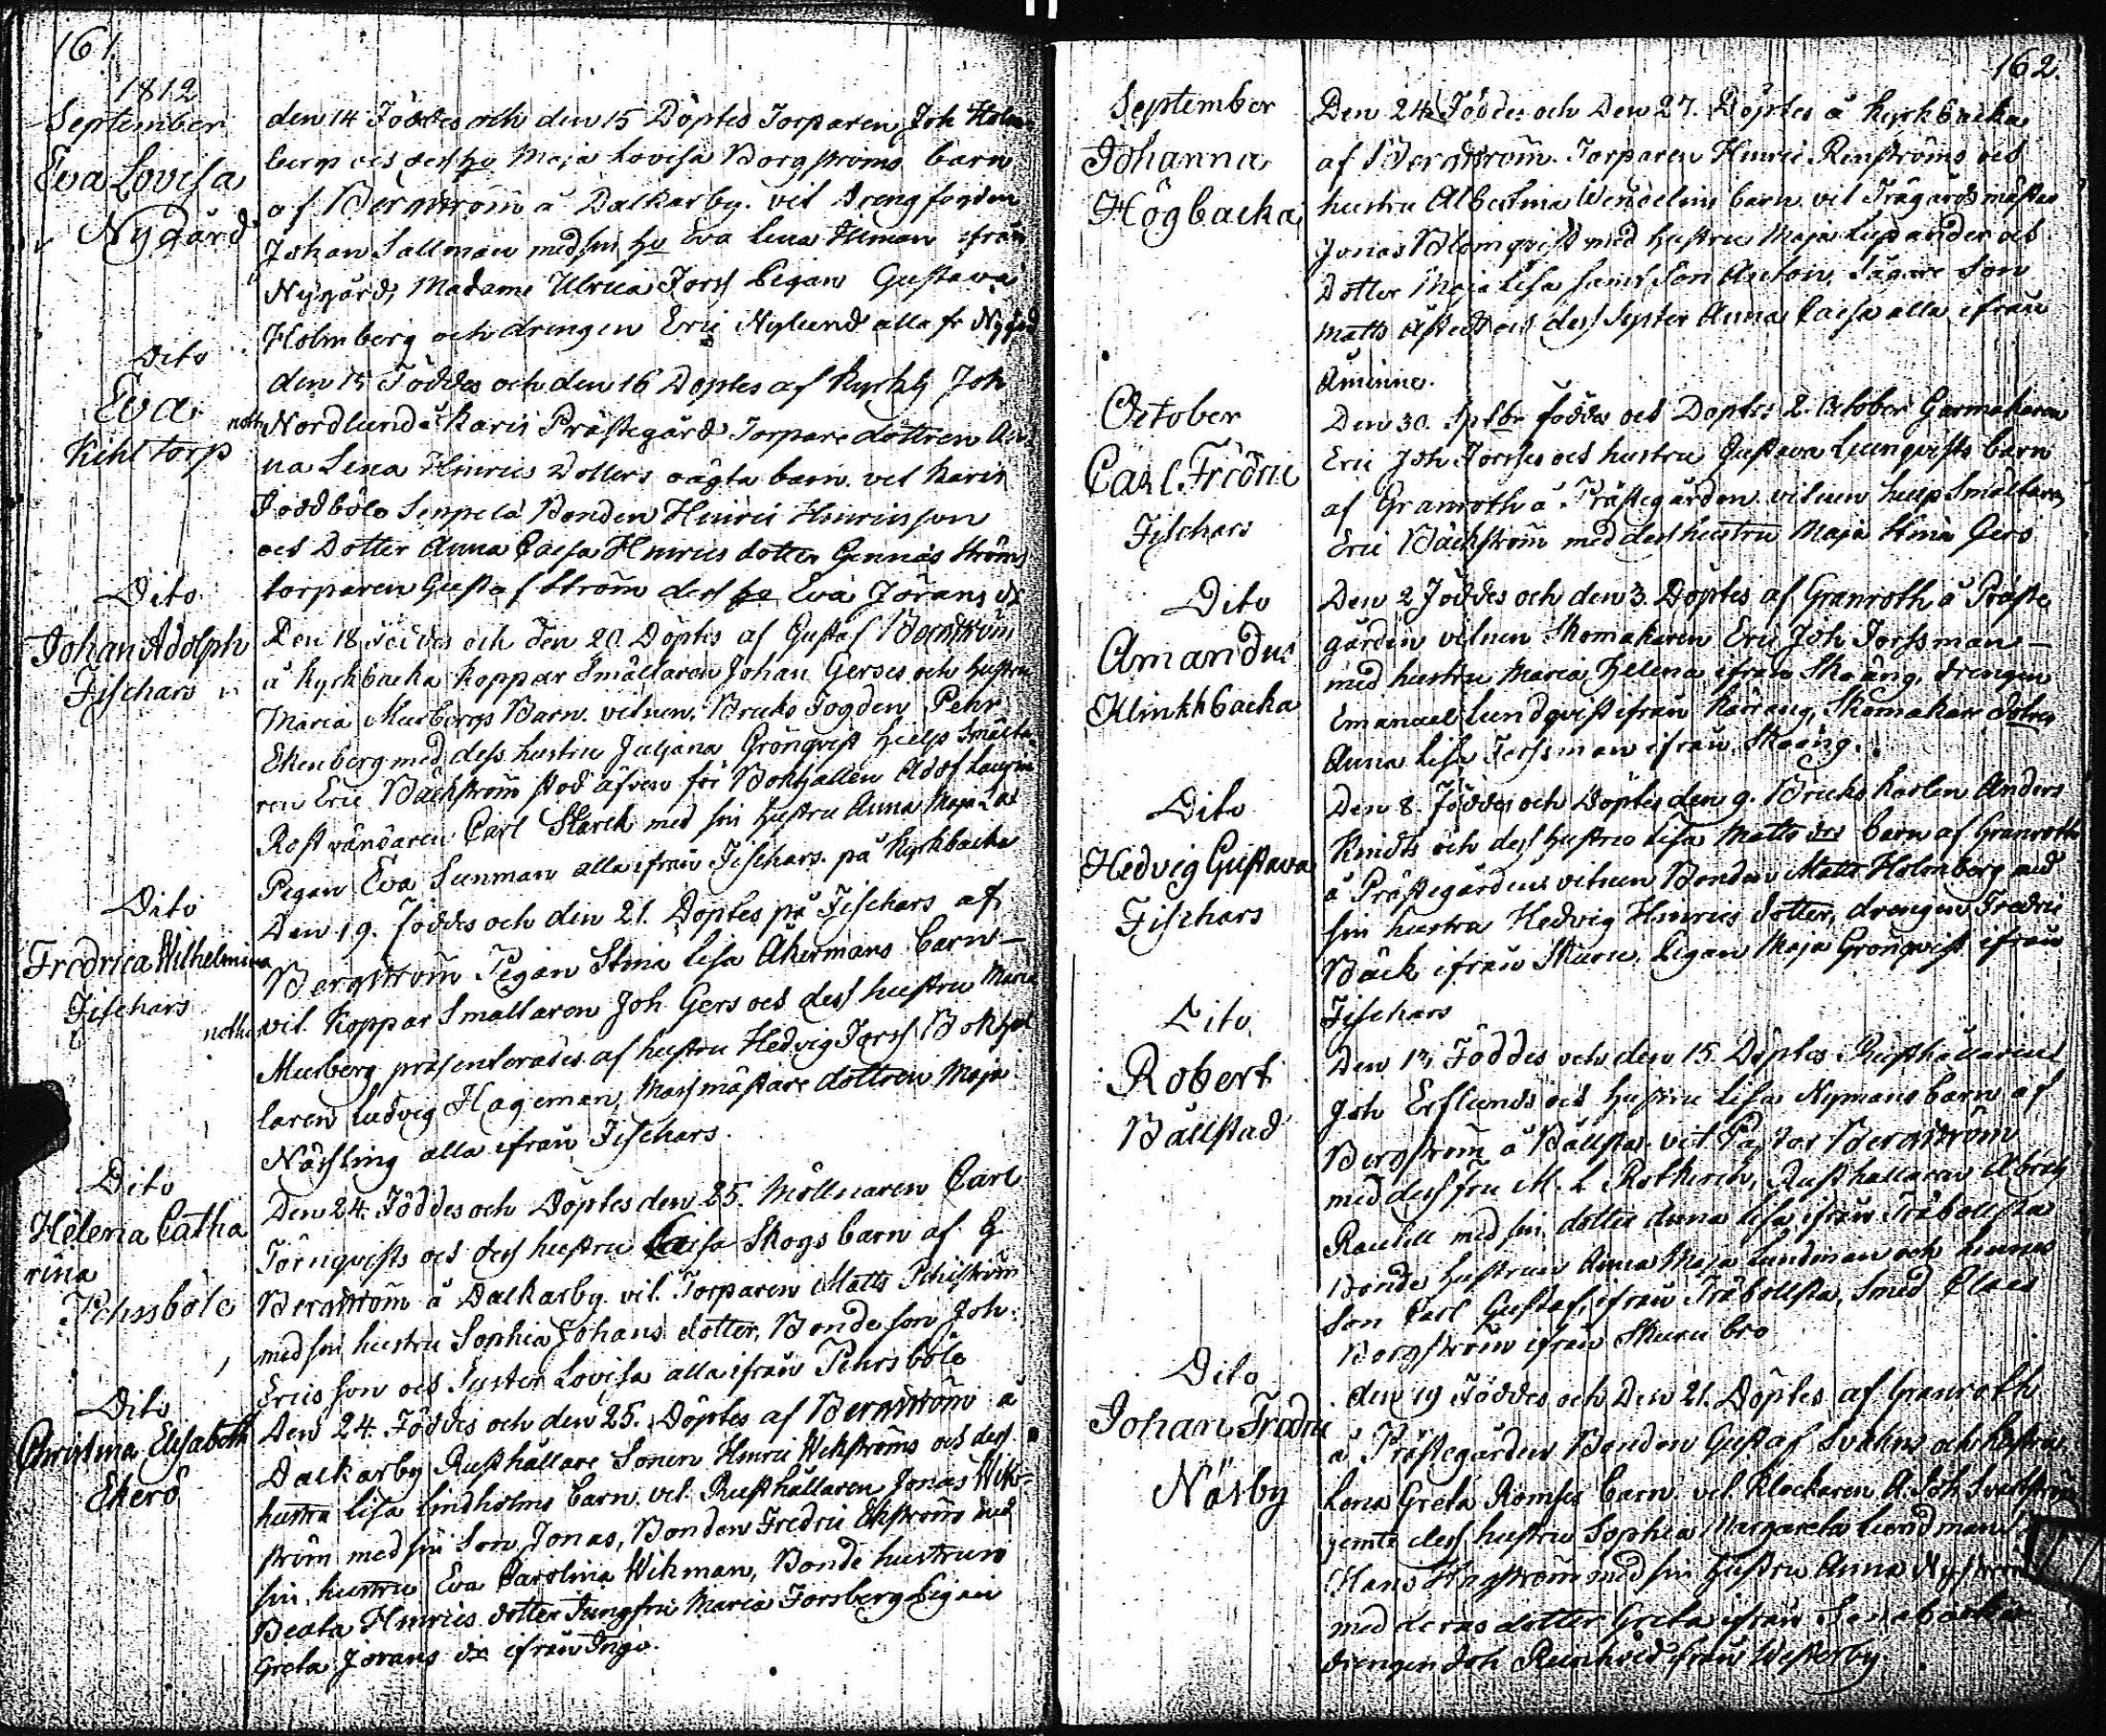 161.
1812
September
Eva Lovisa
Nygård
den 14 Föddes och den 15 Döptes Torparen Joh Holm
bergs och dess hu Maja Lovisa Borgströms barn
af Bergström å Dalkarby. vit Drengfogden
Johan Sallman med sin hu Eva Lena Iliman ifrån
Nygård, Madame Ulrica Forss Pigan Gustava
Holmberg och drengen Eric Nylund alla fr Nygård
Dito
Eva
Kihl torp
den 15 Föddes och den 16 Döptes af Kyrkh Joh
notha Nordlund å Karis Prästegård Torpare dottren An
na Lena Hinrics Dotters oägta barn. vit Karis
Böle Bonden Hinric Hinricsson
och Dotter Anna Caisa Hinrics dotter Gennäs Ströms
torparen Gustaf Ström dess hu Eva Jörans dr
Dito
Johan Adolph
Fischars
Den 18 Föddes och den 20 Döptes af Gustaf Bergström
å Kyrkbacka Koppar Smältaren Johan Gerses och hustru
Maria Murbergs Barn. vitnen. Bruks Fogden Pehr
Ekenberg med dess hustru Juljana Grönqvist Hielp Smälta
ren Eric Bäckström stod äfven för Bokhållen Adolf
Rostvändaren Carl Starck med sin hustru Anna Maja
Pigan Eva Sunman alla ifrån Fischars på Kyrkbacka
Dito
Fredrica Wilhelmina
Fischars
Den 19. föddes och den 21. Döptes på Fischars af
Bergström Pigan Stina Lisa Åkermans barn
notha vit. Koppar Smältaren Joh Gers och dess hustru Maria
Murberg præsenterades af hustru Hedvig Forss Bokhål
laren Ludvig Hageman, Masmästare dottren Maja
Näsling alla ifrån Fischars.
Dito
Helena Catha
rina
Pehrsböle
Den 24. Föddes och Döptes den 25. Möllnaren Carl
Törnqvists och dess hustru Caisa Skogs barn af G
Bergström å Dalkarby vit. Torparen Matts
med sin hustru Sophia Johans dotter, Bonde son Joh:
Ericsson och Syster Lovisa alla ifrån Pehrsböle
Dito
Christina Elisabeth
Ekerö
Den 24. Föddes och den 25. Döptes af Bergström å
Dalkarby Rusthållare Sonen Hinric Wikströms och dess
hustru Lisa Lindholms barn. vit. Rusthållaren Jonas Wik
ström med sin Son Jonas, Bonden Fredric Ekström med
sin hustru Eva Carolina Wikman, Bonde hustrun
Beata Hinrics dotter Jungfru Maria Forsberg Pigan
Greta Jörans dr ifrån Ingö.
162.
September
Johanna
Högbacka
Den 24 Föddes och Den 27. Döptes å Kyrkbacka
af Bergström. Torparen Hinric Renströms och
hustru Albertina Wendelins barn vit Trägårdsmästar
Jonas Blomqvist med hustru Maja Lupander och
Dotter Maja Lisa samt Son Anton, Sågare Son
Matts Åstedt och dess Syster Anna Caisa alla ifrån
Åminne.
October
Carl Fredric
Fischars
Den 30. Sptbr föddes och Döptes 2. October Garmakaren
Eric Joh Forsses och hustru Gustava Liungqvists barn
af Granroth å Prästegården vitnen hielp Smältaren
Eric Bäckström med dess hustru Maja Stina Gers
Dito
Amandus
Klinkbacka
Den 2 Föddes och den 3. Döptes af Granroth å Präste
gården vitnen Skomakaren Eric Joh Forssman
med hustru Maria Helena ifrån Skoäng, drengen
Emanuel Lundqvist ifrån Käräng, Skomakare dotter
Anna Lisa Forssman ifrån Skoäng.
Dito
Hedvig Gustava
Fischars
Den 8. Föddes och Döptes den 9. Bruks Karlen Anders
Kindts och dess hustru Lisa Matts drs barn af Granroth
å Prästegården vitnen Bonden Matts Holmberg med
sin hustru Hedvig Hinrics dotter, drengen Fredric
Bäck ifrån Skuru, Pigan Maja Grönqvist ifrån
Fischars
Dito
Robert
Bällstad
Den 13 Föddes och den 15 Döptes Rusthållarens
Joh Ersunds och hustru Lisa Nymans barn af
Bergström å Bällsta. vit Pastor Bergström
med dess fru M. L Rotkirch, Rusthållaren Abrah
med sin dotter Anna Lisa ifrån Träbollsta
Bonde hustrun Anna Maja Lundman och hennes
Son Carl Gustaf ifrån Träbollsta, Smed Claes
Borgström ifrån Skuru bro
Dito
Johan Fredric
Näsby
den 19 Föddes och Den 21. Döptes af Granroth
å Prästegården Bonden Gustaf Svahns och hustru
Lena Greta Romses barn. vit. Klockaren A. Joh Svartström
jemte dess hustru Sophia Margareta Lundman
Hans Hagström med sin hustru Anna Nyström
med deras dotter Greta ifrån
drengen Joh ifrån Westerby